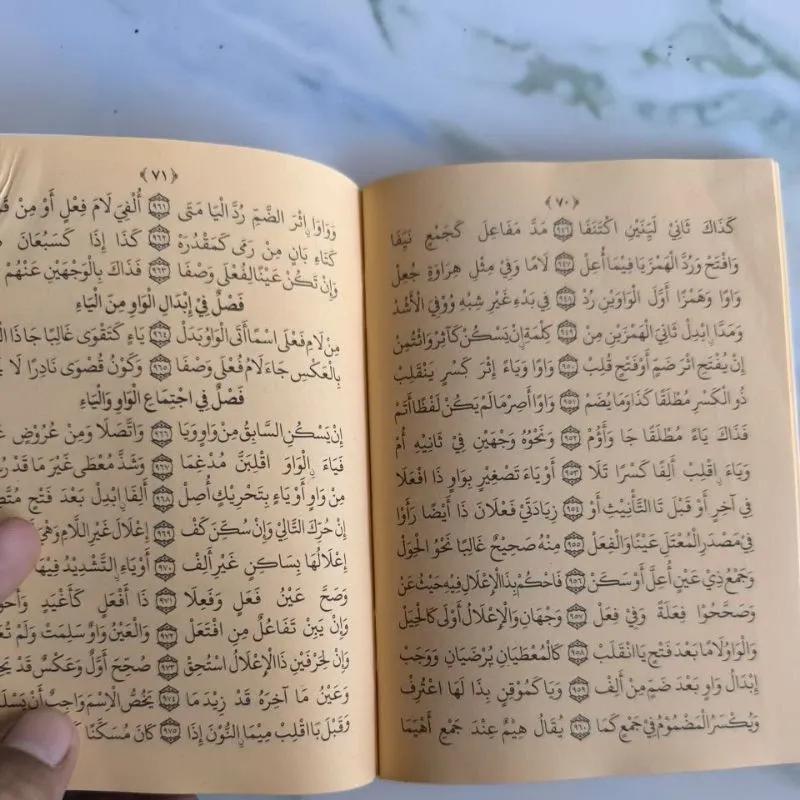 ﴿٧٠﴾
كَذَاكَ ثَانِيْ لَيِّنَيْنِ اكْتَنَفَا ٩٤٦ مَدَّ مَفَاعِلَ كَجَمْعٍ نَيِّفَا
وَافْتَحْ وَرُدَّ الْهَمْزَ يَا فِيمَا أُعِلْ ٩٤٧ لَامًا وَفِيْ مِثْلِ هِرَاوَةٍ جُعِلْ
وَاوًا وَهَمْزًا أَوَّلَ الْوَاوَيْنِ رُدْ ٩٤٨ فِي بَدْءِ غَيْرِ شِبْهِ وُوْفِيَ الْأَشُدْ
وَمَدًّا اِبْدِلْ ثَانِيَ الْهَمْزَيْنِ مِنْ ٩٤٩ كِلْمَةٍ اِنْ يَسْكُنْ كَآثِرْ وَائْتُمِنْ
إِنْ يُفْتَحِ اثْرَ ضَمٍّ أَوْ فَتْحٍ قُلِبْ ٩٥٠ وَاوًا وَيَاءً إِثْرَ كَسْرٍ يَنْقَلِبْ
ذُو الْكَسْرِ مُطْلَقًا كَذَا وَمَا يُضَمْ ٩٥١ وَاوًا أَصِرْ مَا لَمْ يَكُنْ لَفْظًا أَتَمْ
فَذَاكَ يَاءً مُطْلَقًا جَا وَأَؤُمْ ٩٥٢ وَنَحْوُهُ وَجْهَيْنِ فِيْ ثَانِيْهِ أُمْ
وَيَاءً اِقْلِبْ أَلِفًا كَسْرًا تَلَا ٩٥٣ أَوْ يَاءَ تَصْغِيْرٍ بِوَاوٍ ذَا افْعَلَا
فِي آخِرٍ أَوْ قَبْلَ تَا التَّأْنِيْثِ أَوْ ٩٥٤ زِيَادَتَيْ فَعْلَانَ ذَا أَيْضًا رَأَوْا
فِيْ مَصْدَرِ الْمُعْتَلِّ عَيْنًا وَالْفِعَلْ ٩٥٥ مِنْهُ صَحِيْحٌ غَالِبًا نَحْوُ الْحِوَلْ
وَجَمْعُ ذِيْ عَيْنٍ أُعِلَّ أَوْ سَكَنْ ٩٥٦ فَاحْكُمْ بِذَا الْإِعْلَالِ فِيْهِ حَيْثُ عَنْ
وَصَحَّحُوْا فِعَلَةً وَفِيْ فِعَلْ ٩٥٧ وَجْهَانِ وَالْإِعْلَالُ أَوْلَى كَالْحِيَلْ
وَالْوَاوُ لَامًا بَعْدَ فَتْحٍ يَا انْقَلَبْ ٩٥٨ كَالْمُعْطَيَانِ يُرْضَيَانِ وَوَجَبْ
إِبْدَالُ وَاوٍ بَعْدَ ضَمٍّ مِنْ أَلِفْ ٩٥٩ وَيَا كَمُوْقِنٍ بِذَا لَهَا اعْتُرِفْ
وَيُكْسَرُ الْمَضْمُوْمُ فِيْ جَمْعٍ كَمَا ٩٦٠ يُقَالُ هِيْمٌ عِنْدَ جَمْعِ أَهْيَمَا
﴿٧١﴾
وَوَاوًا إِثْرَ الضَّمِّ رُدَّ الْيَا مَتَى ٩٦١ أُلْفِيَ لَامَ فِعْلٍ أَوْ مِنْ
كَتَاءِ بَانٍ مِنْ رَمَى كَمَقْدُرَهْ ٩٦٢ كَذَا إِذَا كَسَبُعَانَ
وَإِنْ تَكُنْ عَيْنًا لِفُعْلَى وَصْفَا ٩٦٣ فَذَاكَ بِالْوَجْهَيْنِ عَنْهُمْ
فَصْلٌ فِيْ إِبْدَالِ الْوَاوِ مِنَ الْيَاءِ
مِنْ لَامِ فَعْلَى اسْمًا أَتَى الْوَاوُ بَدَلْ ٩٦٤ يَاءٍ كَتَقْوَى غَالِبًا جَا ذَا
بِالْعَكْسِ جَاءَ لَامُ فُعْلَى وَصْفَا ٩٦٥ وَكَوْنُ قُصْوَى نَادِرًا لَا
فَصْلٌ فِيْ اجْتِمَاعِ الْوَاوِ وَالْيَاءِ
إِنْ يَسْكُنِ السَّابِقُ مِنْ وَاوٍ وَيَا ٩٦٦ وَاتَّصَلَا وَمِنْ عُرُوْضٍ
فَيَاءً الْوَاوَ اقْلِبَنَّ مُدْغِمَا ٩٦٧ وَشَذَّ مُعْطًى غَيْرَ مَا قَدْ
مِنْ وَاوٍ أَوْ يَاءٍ بِتَحْرِيْكٍ أُصِلْ ٩٦٨ أَلِفًا اِبْدِلْ بَعْدَ فَتْحٍ
إِنْ حُرِّكَ التَّالِيْ وَإِنْ سُكِّنَ كَفْ ٩٦٩ إِعْلَالَ غَيْرِ اللَّامِ وَهْيَ
إِعْلَالُهَا بِسَاكِنٍ غَيْرِ أَلِفْ ٩٧٠ أَوْ يَاءٍ التَّشْدِيْدُ فِيْهَا
وَصَحَّ عَيْنُ فَعَلٍ وَفَعِلَا ٩٧١ ذَا أَفْعَلٍ كَأَغْيَدٍ
وَإِنْ يَبِنْ تَفَاعُلٌ مِنِ افْتَعَلْ ٩٧٢ وَالْعَيْنُ وَاوٌ سَلِمَتْ وَلَمْ
وَإِنْ لِحَرْفَيْنِ ذَا الْإِعْلَالُ اسْتُحِقْ ٩٧٣ صُحِّحَ أَوَّلٌ وَعَكْسٌ قَدْ
وَعَيْنُ مَا آخِرَهُ قَدْ زِيْدَ مَا ٩٧٤ يَخُصُّ الْاِسْمَ وَاجِبٌ أَنْ
وَقَبْلَ بَا اقْلِبْ مِيْمًا النُّوْنَ إِذَا ٩٧٥ كَانَ مُسَكَّنًا